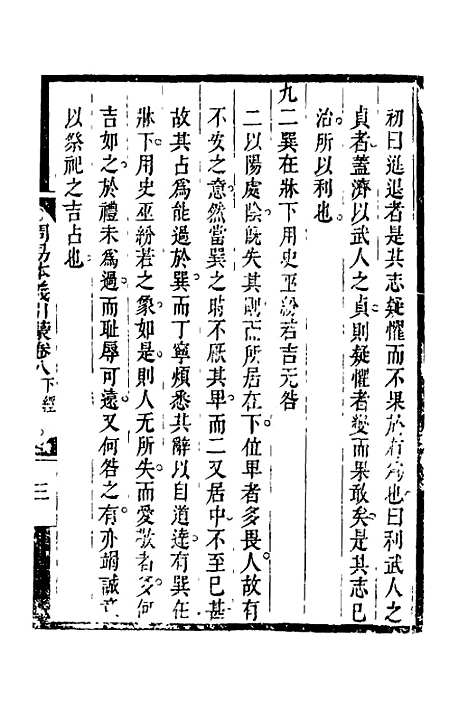 初曰進退者是其志疑懼而不果於有為也曰利武人之
貞者蓋濟以武人之貞則疑懼者變而果敢矣是其志已
治所以利也
九二巽在牀下用史巫紛若吉无咎
二以陽處陰既失其剛而所居在下位卑者多畏人故有
不安之意然當巽之時不厭其卑而二又居中不至已甚
故其占為能過於巽而丁寧煩悉其辭以自道達有巽在
牀下用史巫紛若之象如是則人無所失而愛敬者多何
吉如之於禮未為過而耻辱可遠又何咎之有亦竭誠意
以祭祀之吉占也
周易本義引蒙卷八下經
三